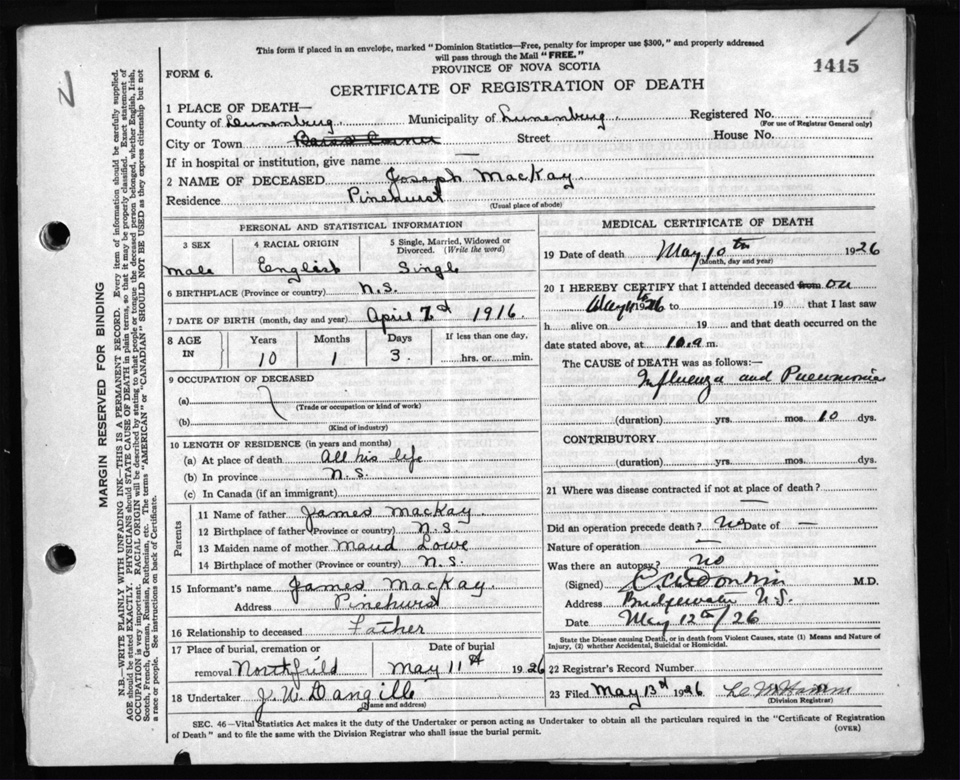 This form if placed in an envelope, marked "Dominion Statistics—Free, penalty for improper use $300," and properly addressed
will pass through the Mail "FREE."
PROVINCE OF NOVA SCOTIA
1415
FORM 6.
CERTIFICATE OF REGISTRATION OF DEATH
1 PLACE OF DEATH—
County of Lunenburg Municipality of Lunenburg Registered No.
(For use of Registrar General only)
City or Town Street House No.
If in hospital or institution, give name —
2 NAME OF DECEASED Joseph MacKay
Residence Pinehurst
(Usual place of abode)
PERSONAL AND STATISTICAL INFORMATION
3 SEX 4 RACIAL ORIGIN 5 Single, Married, Widowed or Divorced. (Write the word)
Male English Single
6 BIRTHPLACE (Province or country) N.S.
7 DATE OF BIRTH (month, day and year) April 1916.
8 AGE IN Years Months Days If less than one day,
10 1 3. hrs. or min.
9 OCCUPATION OF DECEASED
(a)
(Trade or occupation or kind of work)
(b)
(Kind of industry)
10 LENGTH OF RESIDENCE (in years and months)
(a) At place of death All his life
(b) In province N.S.
(c) In Canada (if an immigrant)
Parents
11 Name of father James MacKay
12 Birthplace of father (Province or country) N.S.
13 Maiden name of mother Maud Lowe
14 Birthplace of mother (Province or country) N.S.
15 Informant's name James MacKay.
Address Pinehurst
16 Relationship to deceased Father
17 Place of burial, cremation or removal Northfield Date of burial May 11th 1926
18 Undertaker J. W.
(Name and address)
MEDICAL CERTIFICATE OF DEATH
19 Date of death May 10th 1926
(Month, day and year)
20 I HEREBY CERTIFY that I attended deceased from on
May 1926 to 19 that I last saw
h alive on 19 and that death occurred on
date stated above, at 10.a m.
The CAUSE of DEATH was as follows:—
Influenza and Pneumonia
(duration) yrs. mos. 10 dys.
CONTRIBUTORY
(duration) yrs. mos. dys.
21 Where was disease contracted if not at place of death?
—
Did an operation precede death? No Date of —
Nature of operation —
Was there an autopsy? No
(Signed) M.D.
Address Bridgewater N.S.
Date May 12th/26
State the Disease causing Death, or in death from Violent Causes, state (1) Means and Nature of
Injury, (2) whether Accidental, Suicidal or Homicidal.
22 Registrar's Record Number
23 Filed May 13th 1926
(Division Registrar)
SEC. 46—Vital Statistics Act makes it the duty of the Undertaker or person acting as Undertaker to obtain all the particulars required in the "Certificate of Registration
of Death" and to file the same with the Division Registrar who shall issue the burial permit.
(OVER)
MARGIN RESERVED FOR BINDING
N.B.—WRITE PLAINLY WITH UNFADING INK—THIS IS A PERMANENT RECORD. Every item of information should be carefully supplied.
AGE should be stated EXACTLY. PHYSICIANS should STATE CAUSE OF DEATH in plain terms, so that it may be properly classified. Exact statement of
OCCUPATION is very important. RACIAL ORIGIN will be described by stating to what people or tongue the deceased person belonged, whether English, Irish,
Scotch, French, German, Russian, Ruthenian, etc. The terms "AMERICAN" or "CANADIAN" SHOULD NOT BE USED as they express citizenship but not
a race or people. See instructions on back of Certificate.